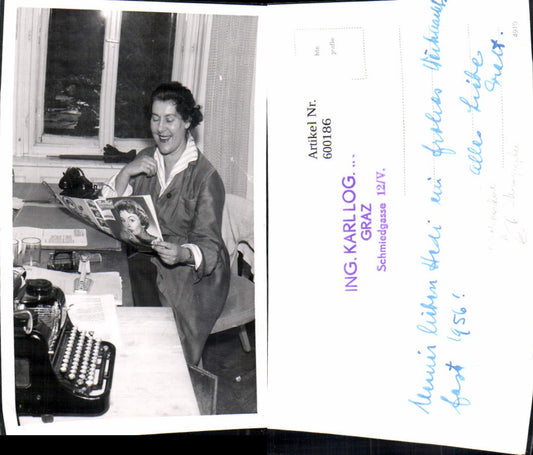 Artikel Nr.
600186
ING. KARL LOG. ...
GRAZ
Schmiedgasse 12/V.
Meiner lieben Hedi ein frohes Weihnachts
fest 1956!
alles Liebe
4919